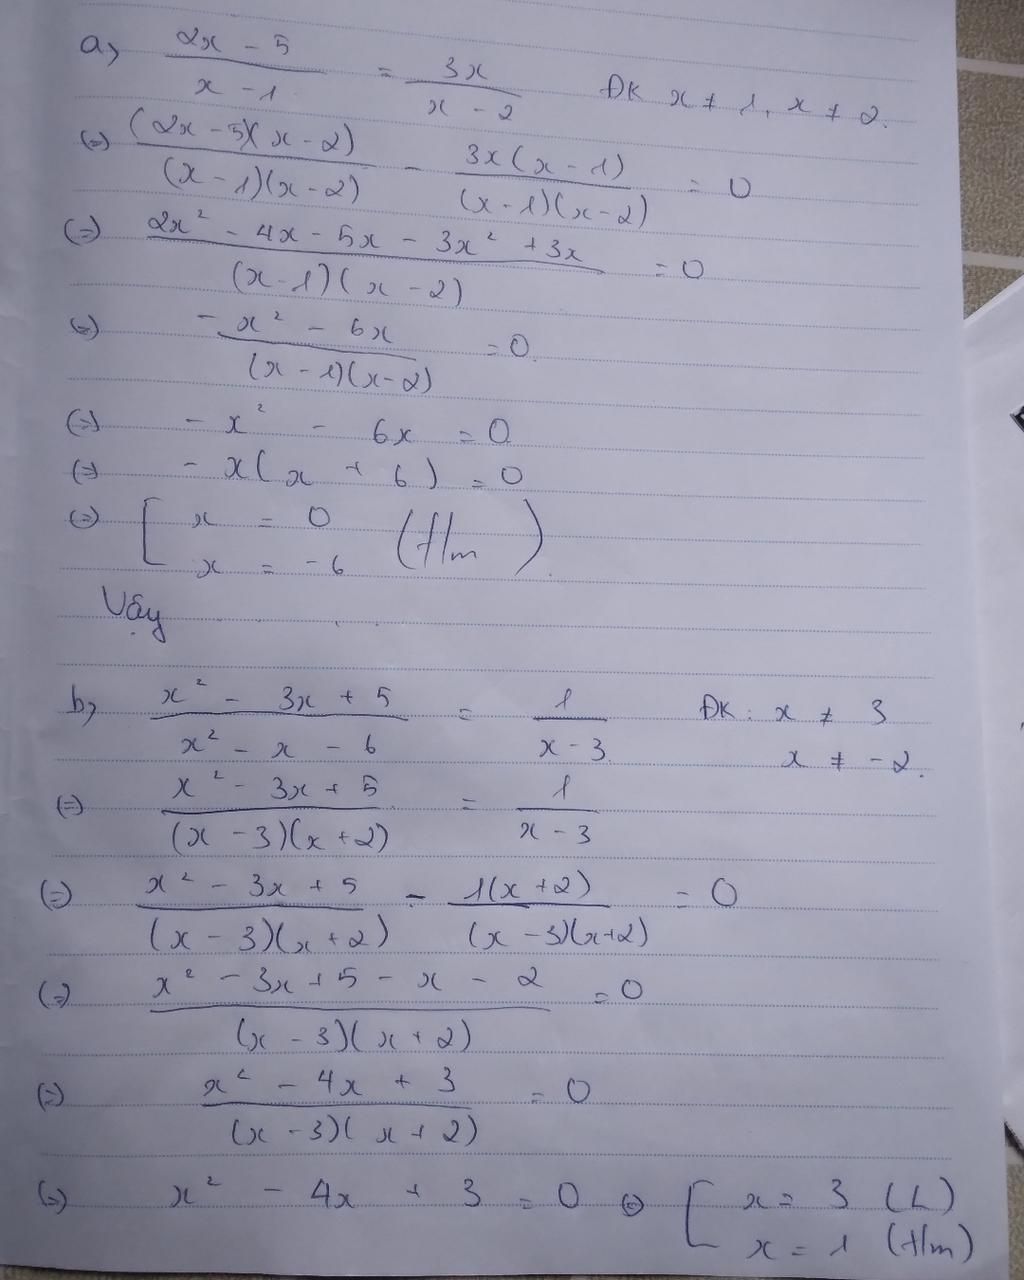 a, (2x - 5)/(x - 1) = 3x/(x - 2) ĐK x ≠ 1, x ≠ 2.
(=) ((2x - 5)(x - 2))/((x - 1)(x - 2)) - (3x(x - 1))/((x - 1)(x - 2)) = 0
(=) (2x² - 4x - 5x - 3x² + 3x)/((x - 1)(x - 2)) = 0
(=) (-x² - 6x)/((x - 1)(x - 2)) = 0.
(=) - x² - 6x = 0
(=) - x(x + 6) = 0
(=) [ x = 0
x = -6 (t/m).
Vậy
b, (x² - 3x + 5)/(x² - x - 6) = 1/(x - 3) ĐK: x ≠ 3
x ≠ -2.
(=) (x² - 3x + 5)/((x - 3)(x + 2)) = 1/(x - 3)
(=) (x² - 3x + 5)/((x - 3)(x + 2)) - (1(x + 2))/((x - 3)(x + 2)) = 0
(=) (x² - 3x + 5 - x - 2)/((x - 3)(x + 2)) = 0
(=) (x² - 4x + 3)/((x - 3)(x + 2)) = 0
(=) x² - 4x + 3 = 0 (=) [ x = 3 (L)
x = 1 (t/m)